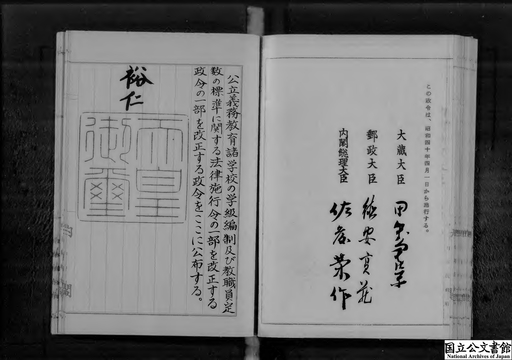 この政令は、昭和四十年四月一日から施行する。
大蔵大臣 田中角榮
郵政大臣 徳安實藏
内閣総理大臣 佐藤榮作
公立義務教育諸学校の学級編制及び教職員定
数の標準に関する法律施行令の一部を改正する
政令の一部を改正する政令をここに公布する。
裕仁
天皇
御璽
国立公文書館
National Archives of Japan